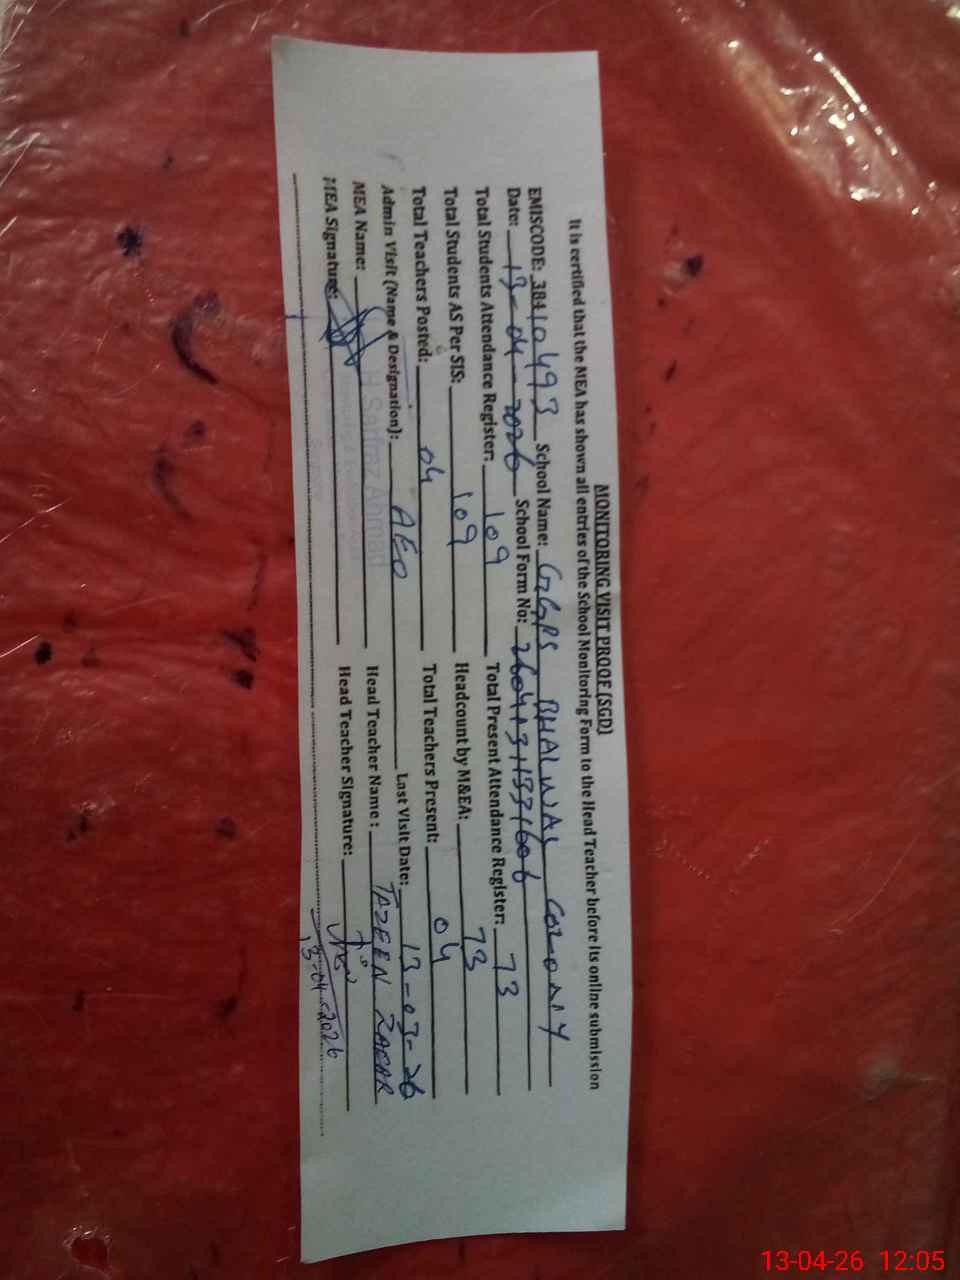 MONITORING VISIT PROOF (SGD)
It is certified that the MEA has shown all entries of the School Monitoring Form to the Head Teacher before its online submission
EMISCODE: 38410493 School Name: GGPS BHALWAL COLONY
Date: 13-04-2026 School Form No:
Total Students Attendance Register: 109 Total Present Attendance Register: 73
Total Students AS Per SIS: 109 Headcount by M&EA: 73
Total Teachers Posted: 04 Total Teachers Present: 04
Admin Visit (Name & Designation): AEO Last Visit Date: 13-03-26
MEA Name: H Sarfraz Ahmad Head Teacher Name : TAZEEN ZAFAR
MEA Signature: Head Teacher Signature:
13-04-2026
13-04-26 12:05